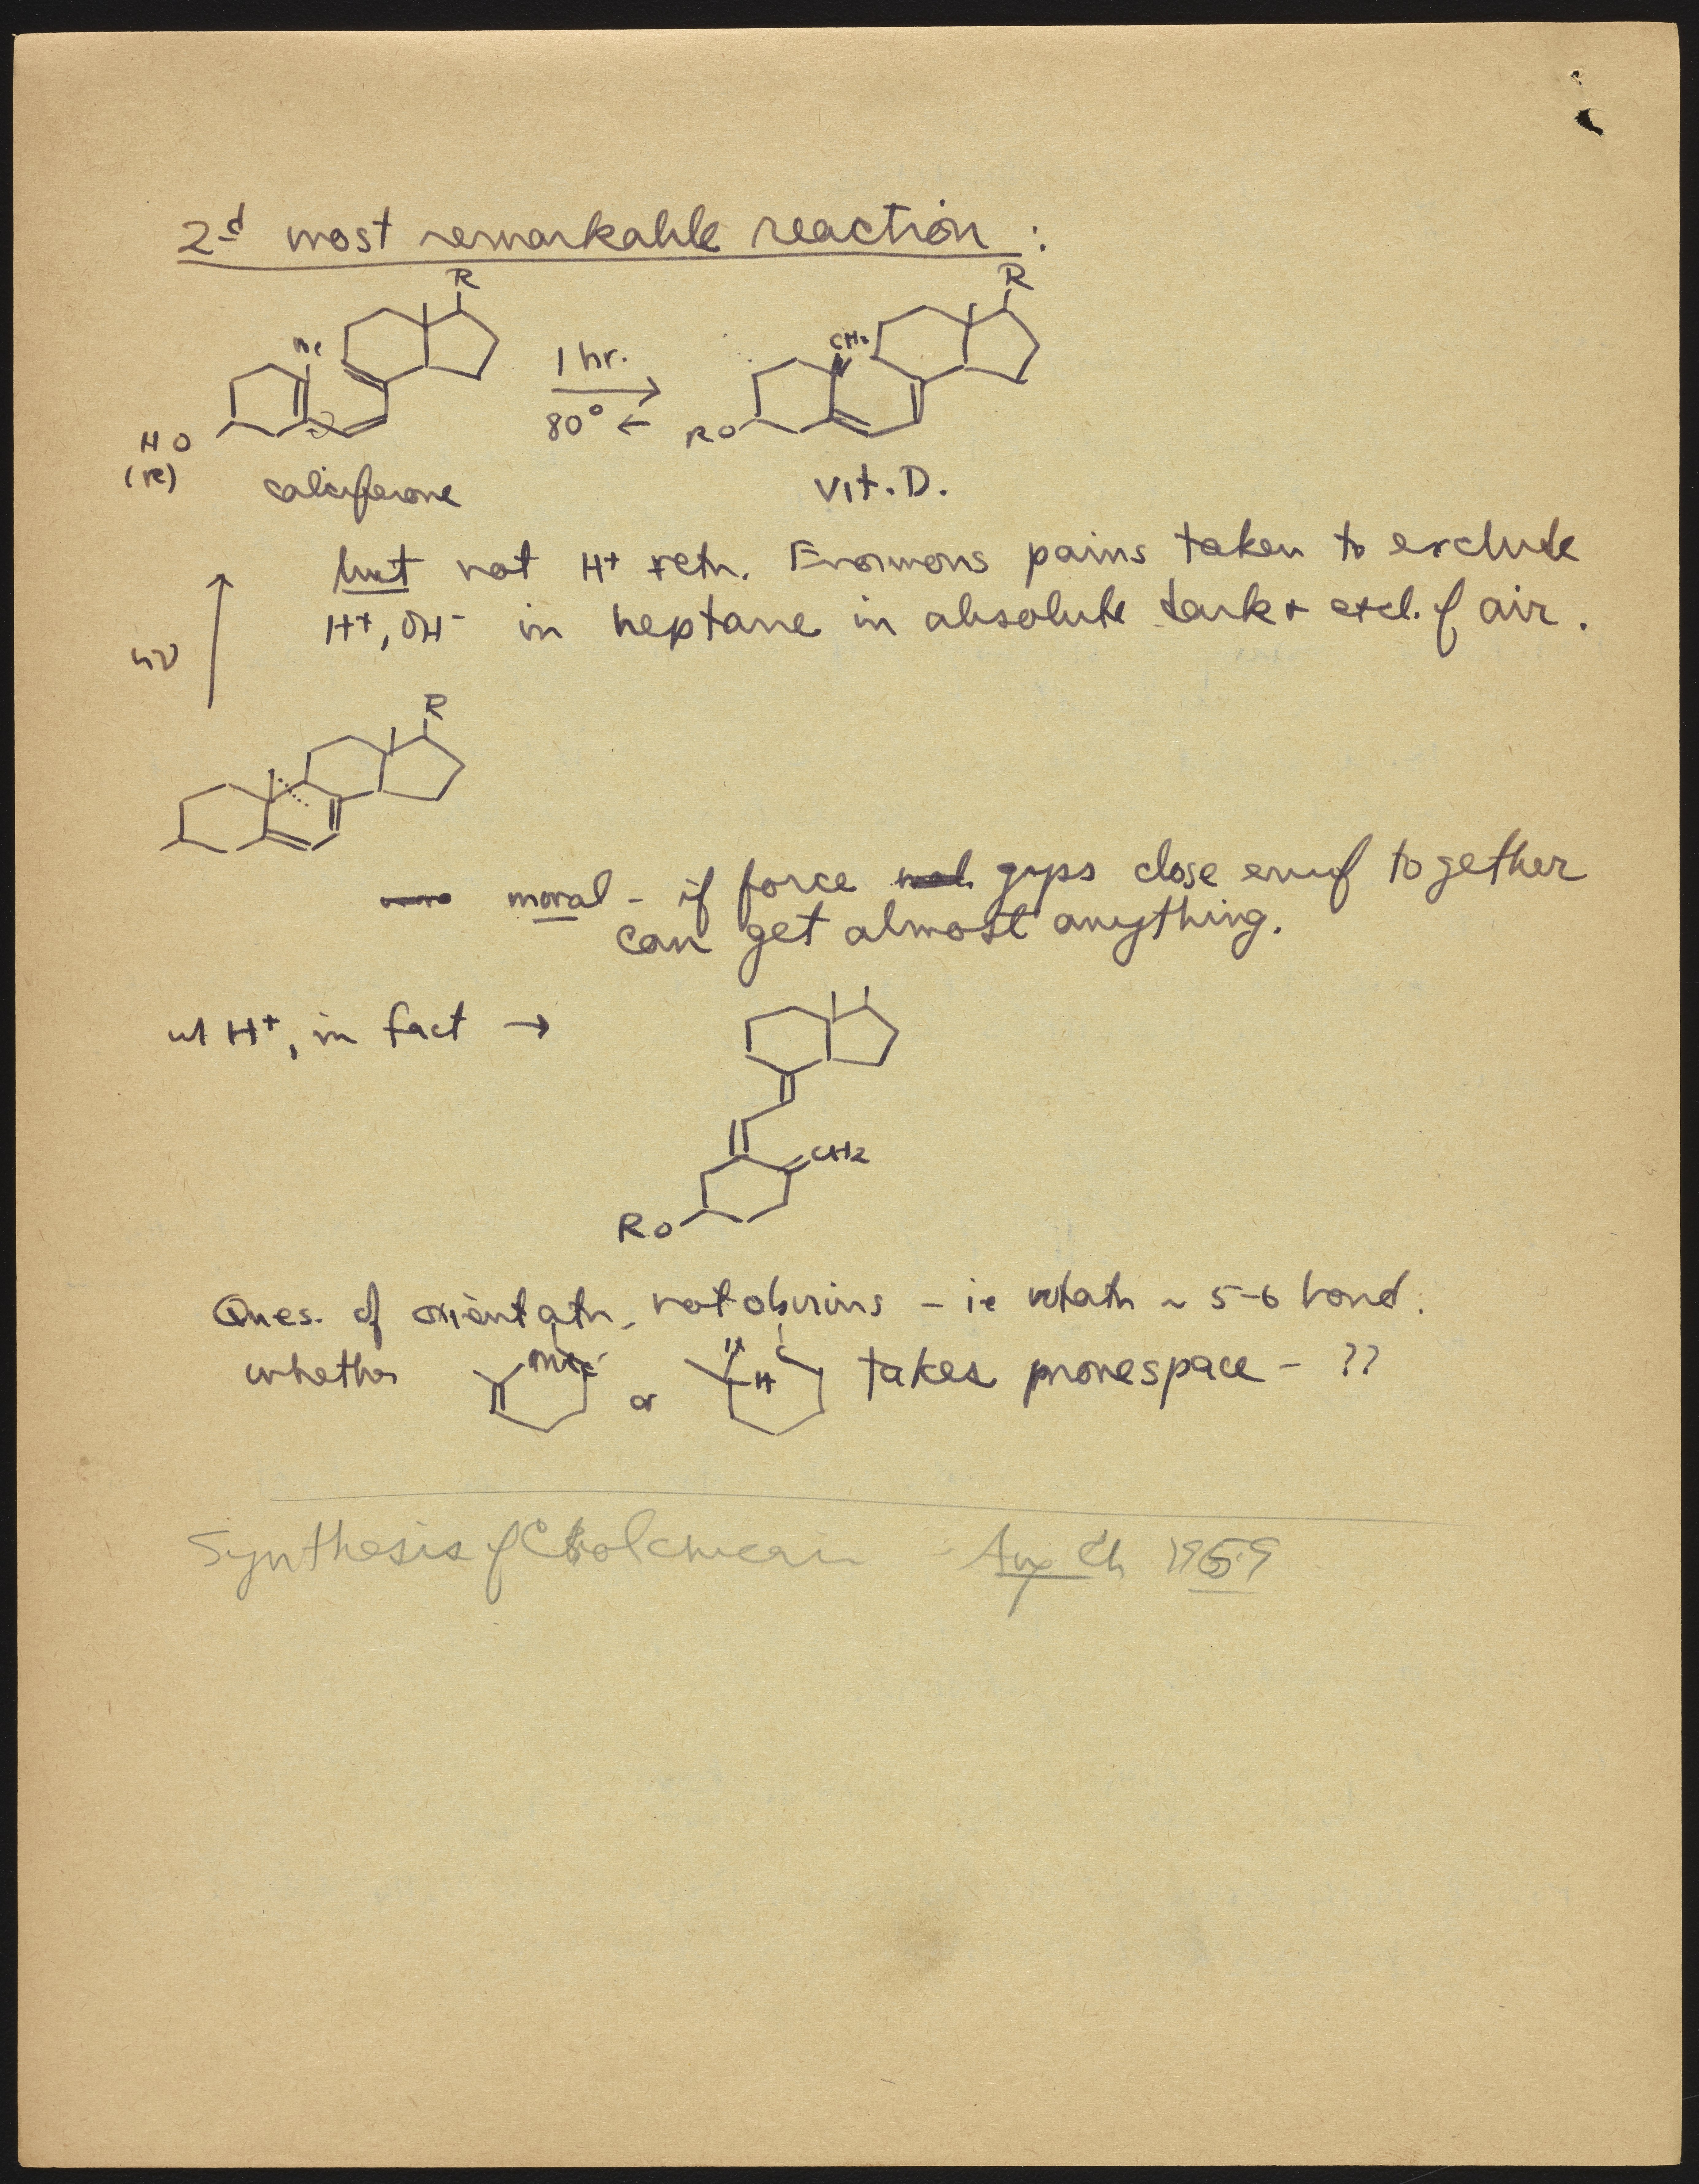 2d most remarkable reaction :
R
R
Me
CH2
1 hr.
80°
HO
(R)
RO
calciferone
vit. D.
but not H+ rctn. Enormous pains taken to exclude
H+, OH- in heptane in absolute dark + excl. of air.
hν
R
moral - if force gyps close enuf together
can get almost anything.
w/ H+, in fact →
CH2
RO
Ques. of orientatn, not obvious - ie rotatn ~ 5-6 bond.
whether
Me
or
H
H
takes more space - ??
Synthesis of
Ang Ch 1959